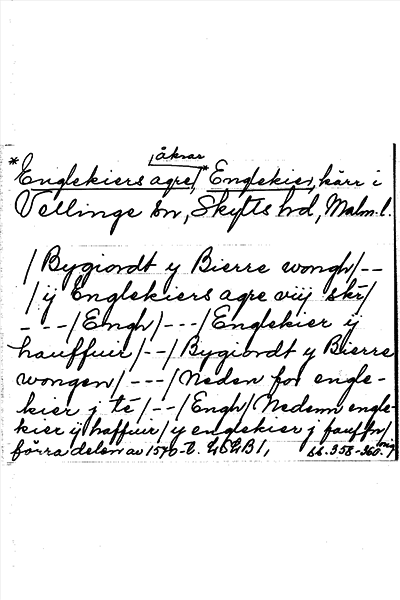 åkrar
*Englekiers agre, *Englekier, kärr i
Vellinge sn, Skytts hd, Malm. l.
/Bygiordt y Bierre wongh/--
/ij Englekiers agre viij skr/
---/Engh/---/Englekier ij
hauffuer/--/Bygiordt y Bierre
wongen/---/Neden for engle-
kier j té/--/Engh/Nedenn engle-
kier ij haffuer/ij englekier j fauffn/
förra delen av 1570-t. LSLB1, ss. 358-360.